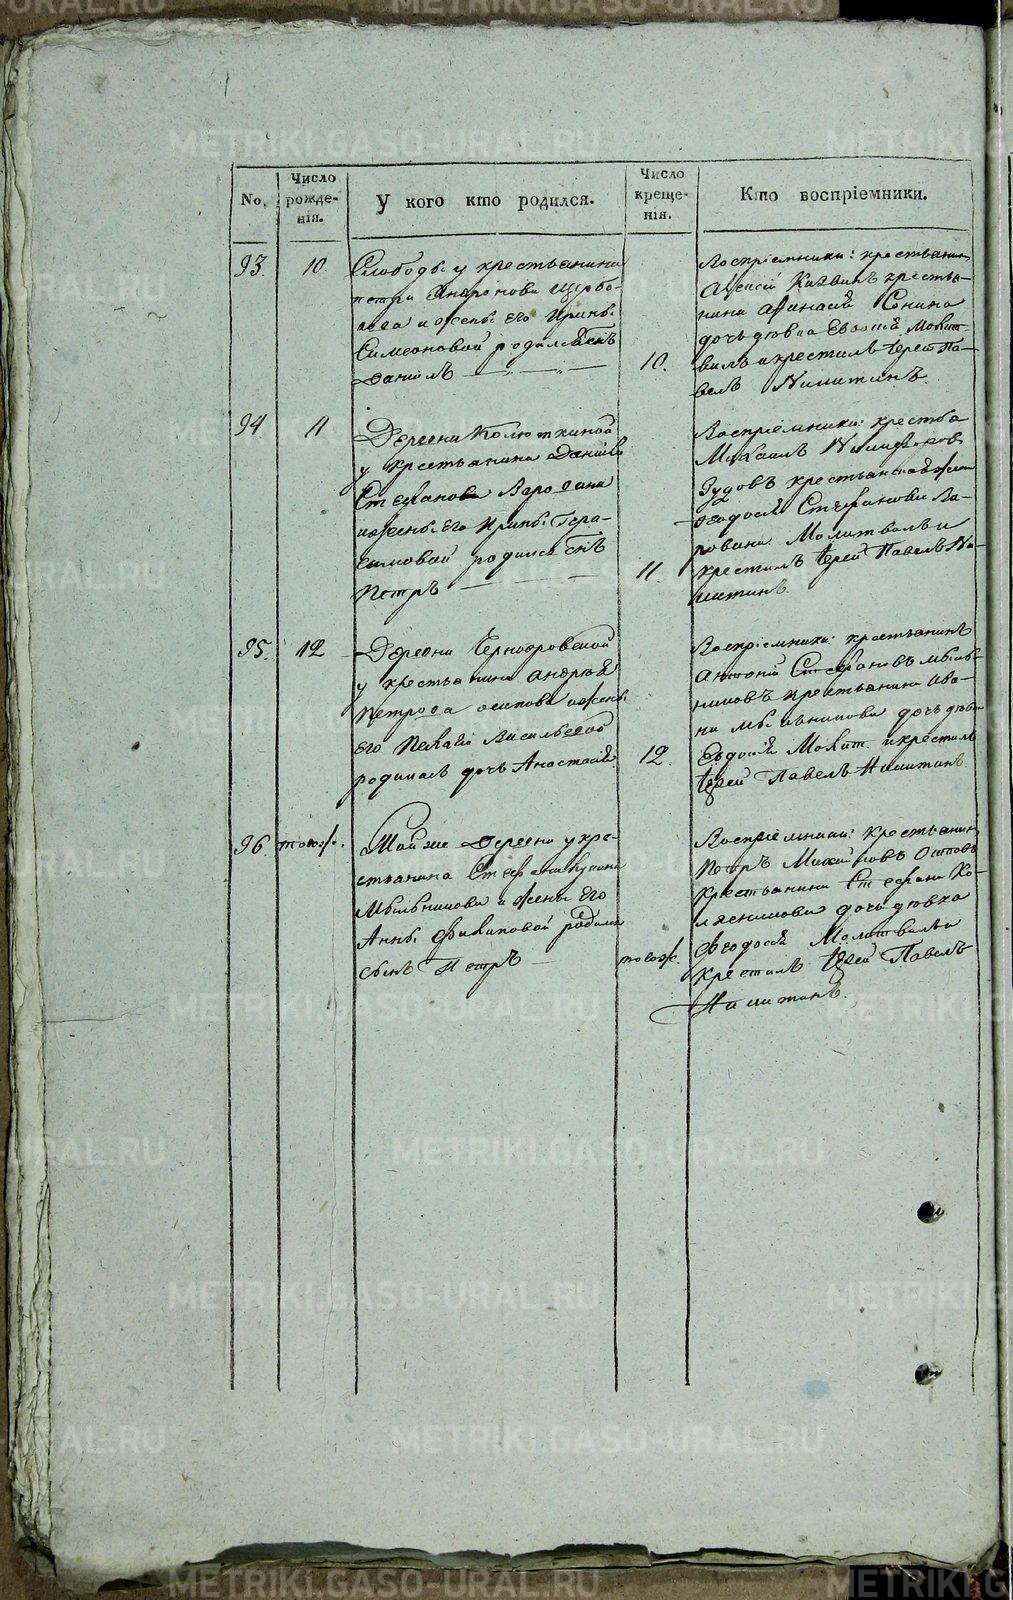 No.
Число рожде-
нія.
У кого кто родился.
Число креще-
нія.
Кто воспріемники.
93.
10.
Слободы у крестьянина
петра Андронова Щерба-
и жены его Ирины
Симеоновой родился снъ
Данiилъ
10.
Воспріемники: крестьянинъ
Алексей крестья-
нина Афанасія Сонина
дочь девка Евдокія Молит-
вилъ и крестилъ Іерей Па-
велъ Никитинъ.
94.
11
Деревни Колюткиной
у крестьянина Даніила
Стефанова
и жены его Ирины Гера-
симовой родился снъ
Петръ
11.
Воспріемники:
Михаилъ Никифоровъ
крестьянина жена
Стефанова Ва-
Молитвилъ и
крестилъ Іерей Павелъ Ни-
китинъ.
95.
12
Деревни Черноозровской
у крестьянина Андрея
Петрова осипова и жены
его Пелагіи Васильевой
родилась дочь Анастасія
12.
Воспріемники: крестьянинъ
Антоній Стефановъ Мыль-
никовъ крестьянина Ива-
на Мыльникова дочь девка
Евдокія Молит. и крестилъ
Іерей Павелъ Никитинъ.
96.
тогож.
Той же Деревни у кре-
стьянина Стефана
Мыльникова и жены его
Анны Филиповой родился
сынъ Петръ
тогож.
Воспріемники: крестьянинъ
Петръ Михайловъ
крестьянина Стефана Ко-
дочь девка
Феодосія Молитвилъ и
крестилъ Іерей Павелъ
Никитинъ.
METRIKI.GASO-URAL.RU